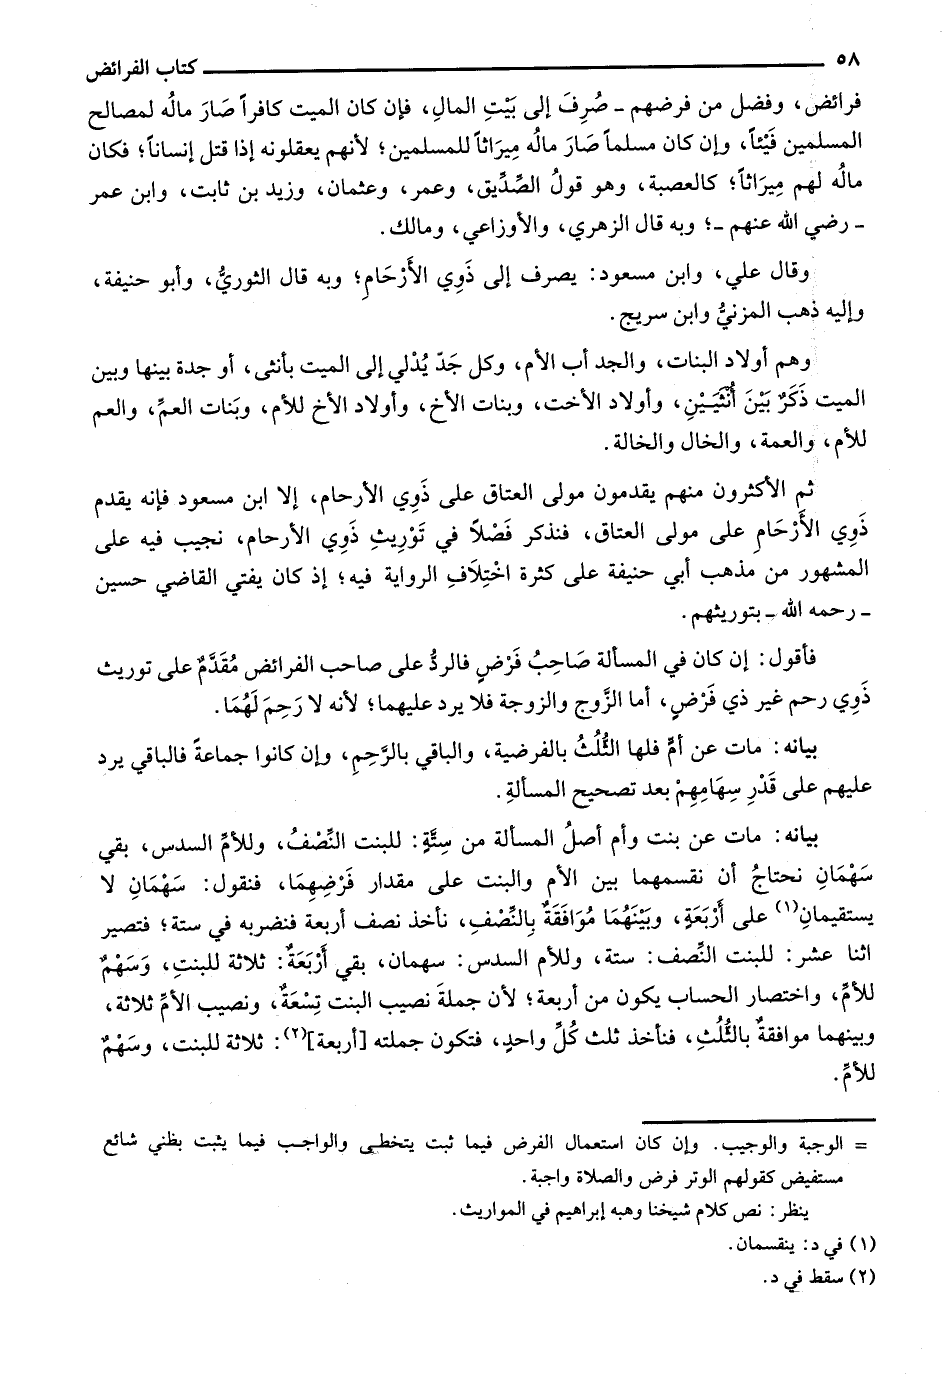 ٥٨ كتاب الفرائض
فرائض، وفضل من فرضهم ـ صُرِفَ إلى بَيْتِ المالِ، فإن كان الميت كافراً صَارَ مالُه لمصالح
المسلمين فَيْئاً، وإن كان مسلماً صَارَ مالُه مِيرَاثاً للمسلمين؛ لأنهم يعقلونه إذا قتل إنساناً؛ فكان
مالُه لهم مِيرَاثاً؛ كالعصبة، وهو قولُ الصِّدِّيق، وعمر، وعثمان، وزيد بن ثابت، وابن عمر
ـ رضي الله عنهم ـ؛ وبه قال الزهري، والأوزاعي، ومالك.
وقال علي، وابن مسعود: يصرف إلى ذَوِي الأَرْحَامِ؛ وبه قال الثوريُّ، وأبو حنيفة،
وإليه ذهب المزنيُّ وابن سريج.
وهم أولاد البنات، والجد أب الأم، وكل جَدّ يُدْلي إلى الميت بأنثى، أو جدة بينها وبين
الميت ذَكَرٌ بَيْنَ أُنْثَيَيْنِ، وأولاد الأخت، وبنات الأخ، وأولاد الأخ للأم، وبَنات العمِّ، والعم
للأم، والعمة، والخال والخالة.
ثم الأكثرون منهم يقدمون مولى العتاق على ذَوِي الأرحام، إلا ابن مسعود فإنه يقدم
ذَوِي الأَرْحَامِ على مولى العتاق، فنذكر فَصْلاً في تَوْرِيثِ ذَوِي الأرحام، نجيب فيه على
المشهور من مذهب أبي حنيفة على كثرة اخْتِلَافِ الرواية فيه؛ إذ كان يفتي القاضي حسين
ـ رحمه الله ـ بتوريثهم.
فأقول: إن كان في المسألة صَاحِبُ فَرْضٍ فالردُّ على صاحب الفرائض مُقَدَّمٌ على توريث
ذَوِي رحم غير ذي فَرْضٍ، أما الزَّوج والزوجة فلا يرد عليهما؛ لأنه لَا رَحِمَ لَهُمَا.
بيانه: مات عن أمٍّ فلها الثُّلُثُ بالفرضية، والباقي بالرَّحِمِ، وإن كانوا جماعةً فالباقي يرد
عليهم على قَدْرِ سِهَامِهِمْ بعد تصحيح المسألةِ.
بيانه: مات عن بنت وأم أصلُ المسألة من سِتَّةٍ: للبنت النِّصْفُ، وللأمِّ السدس، بقي
سَهْمَانِ نحتاجُ أن نقسمهما بين الأم والبنت على مقدار فَرْضِهِمَا، فنقول: سَهْمَانِ لا
يستقيمانِ(١) على أَرْبَعَةٍ، وبَيْنَهُمَا مُوَافَقَةٌ بِالنِّصْفِ، نأخذ نصف أربعة فنضربه في ستة؛ فتصير
اثنا عشر: للبنت النِّصف: ستة، وللأم السدس: سهمان، بقي أَرْبَعَةٌ: ثلاثة للبنتِ، وَسَهْمٌ
للأمِّ، واختصار الحساب يكون من أربعة؛ لأن جملةَ نصيب البنت تِسْعَةٌ، ونصيب الأمِّ ثلاثة،
وبينهما موافقةٌ بالثُّلُثِ، فنأخذ ثلث كُلِّ واحدٍ، فتكون جملته [أربعة](٢): ثلاثة للبنت، وسَهْمٌ
للأمِّ.
= الوجبة والوجيب. وإن كان استعمال الفرض فيما ثبت يتخطى والواجب فيما يثبت بظني شائع
مستفيض كقولهم الوتر فرض والصلاة واجبة.
ينظر: نص كلام شيخنا وهبه إبراهيم في المواريث.
(١) في د: ينقسمان.
(٢) سقط في د.